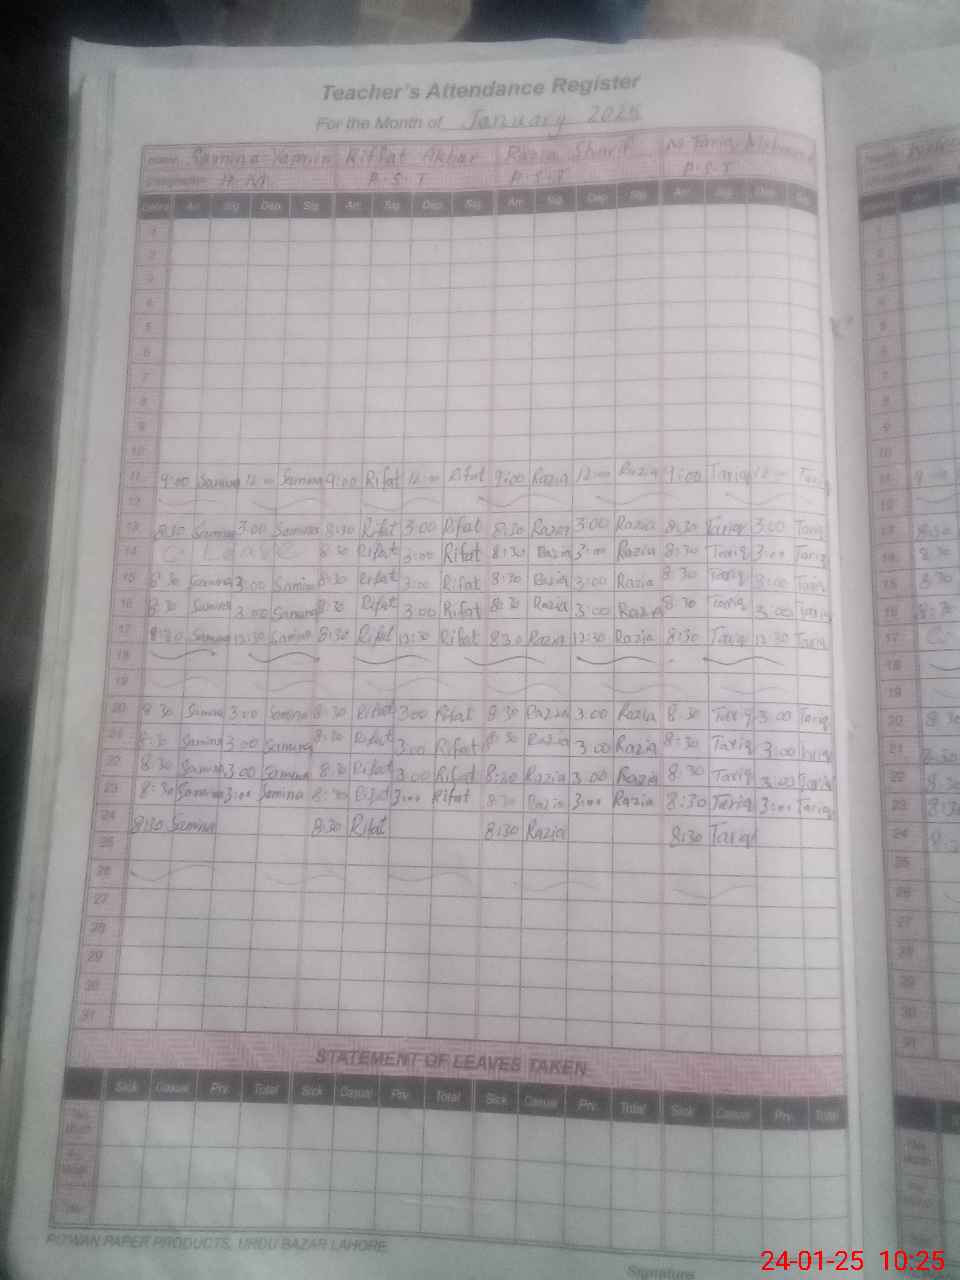 Teacher's Attendance Register
For the Month of January 2025
Name Samina Yasmin Riffat Akbar Razia Sharif M Tariq Mehmood
Designation H.M P.S.T P.S.T P.S.T
Dates Arr. Sig. Dep. Sig. Arr. Sig. Dep. Sig. Arr. Sig. Dep. Sig. Arr. Sig. Dep. Sig.
1
2
3
4
5
6
7
8
9
10
11 9:00 Samina 12:00 Samina 9:00 Rifat 12:00 Rifat 9:00 Razia 12:00 Razia 9:00 Tariq 12:00 Tariq
12
13 8:30 Samina 3:00 Samina 8:30 Rifat 3:00 Rifat 8:30 Razia 3:00 Razia 8:30 Tariq 3:00 Tariq 13 8:30
14 C Leave 8:30 Rifat 3:00 Rifat 8:30 Razia 3:00 Razia 8:30 Tariq 3:00 Tariq 14 8:30
15 8:30 Samina 3:00 Samina 8:30 Rifat 3:00 Rifat 8:30 Razia 3:00 Razia 8:30 Tariq 3:00 Tariq 15 8:30
16 8:30 Samina 3:00 Samina 8:30 Rifat 3:00 Rifat 8:30 Razia 3:00 Razia 8:30 Tariq 3:00 Tariq 16 8:30
17 8:30 Samina 12:30 Samina 8:30 Rifat 12:30 Rifat 8:30 Razia 12:30 Razia 8:30 Tariq 12:30 Tariq 17
18 18
19 19
20 8:30 Samina 3:00 Samina 8:30 Rifat 3:00 Rifat 8:30 Razia 3:00 Razia 8:30 Tariq 3:00 Tariq 20 8:30
21 8:30 Samina 3:00 Samina 8:30 Rifat 3:00 Rifat 8:30 Razia 3:00 Razia 8:30 Tariq 3:00 Tariq 21 8:30
22 8:30 Samina 3:00 Samina 8:30 Rifat 3:00 Rifat 8:30 Razia 3:00 Razia 8:30 Tariq 3:00 Tariq 22 8:30
23 8:30 Samina 3:00 Samina 8:30 Rifat 3:00 Rifat 8:30 Razia 3:00 Razia 8:30 Tariq 3:00 Tariq 23 8:30
24 8:30 Samina 8:30 Rifat 8:30 Razia 8:30 Tariq 24
25 25
26 26
27 27
28 28
29 29
30 30
31 31
STATEMENT OF LEAVES TAKEN
Sick Casual Prv. Total Sick Casual Prv. Total Sick Casual Prv. Total Sick Casual Prv. Total
This Month
Total
POWAN PAPER PRODUCTS, URDU BAZAR LAHORE
Signature
24-01-25 10:25